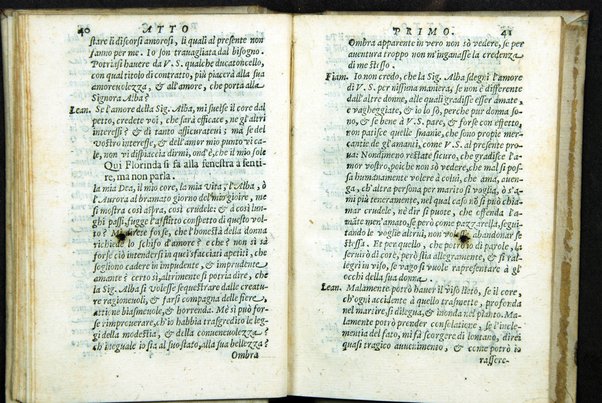 40 ATTO
stare li discorsi amorosi, li quali al presente non
fanno per me. Io son travagliata dal bisogno.
Potrei si havere da V.S. qualche ducatoncello,
con qual titolo di contratto, più piacerà alla sua
amorevolezza, & all'amore, che porta alla
Signora Alba?
Lean. Se l'amore della Sig. Alba, mi svelse il cor dal
petto, credete voi, che sarà efficace, ne gl'altri
interessi? & di tanto assicuratevi; ma se del
vostro interesse, & dell'amor mio punto vi ca-
le, non vi dispiaccia dirmi, ond'è, che il mio sole
Qui Florinda si fa alla fenestra à senti-
re, ma non parla.
la mia Dea, il mio core, la mia vita, l'Alba, ò
l'Aurora al bramato giorno del mio gioire, me
si mostra così aspra, così crudele: & à così lun-
ghi passi, fugge l'afflitto conspetto di questo vol-
to? Mi direte forse, che l'honestà della donna
richiede lo schifo d'amore? che? non si sà
forse ciò intendersi in quei sfacciati apetiti, che
sogliono cadere in imprudente, & impudente
amante? certo si, altrimente si potria dire, che
la Sig. Alba si volesse sequestrare dalle creatu-
re ragionevoli, & farsi compagna delle fiere,
attione biasmevole, & horrenda. Me si può for-
se rimproverare, ch'io habbia trasgredito le leg
gi della modestia, & della convenevolezza?
ch'ineguale io sia al suo stato, alla sua bellezza?
Ombra
PRIMO. 41
Ombra apparente in vero non sò vedere, se per
aventura troppo non m'inganasse la credenza
di me stesso.
Fiam. Io non credo, che la Sig. Alba sdegni l'amore
di V.S. per nissuna maniera, se non è differente
dall'altre donne, alle quali gradisce esser amate,
& vagheggiate, & io lo sò, perche pur donna so-
no, & se bene à V.S. pare, & forse con effetto,
non patisce quelle smanie, che sono proprie mer-
cantie de gl'amanti, come V.S. al presente pro-
va: Nondimeno restate sicuro, che gradisce l'a-
mor vostro, poiche non sò vedere, che mal si pos
sa humanamente volere à colui, che ama, aven-
ga, ch'altra persona per marito si voglia, ò s'a-
mi più teneramente, nel qual caso nō si può chia-
mar crudele, nè dir si puote, che offenda l'a-
mate men'amato, se però come pazzarella, segui-
tando le voglie altrui, non vuole abandonar se
stessa. Et per quello, che potrò io di parole, la
servirò di core, però stia allegramente, & si ral-
legri in viso, se vago si vuole rapresentare à gl'
occhi della sua donna.
Lean. Malamente potrò haver il viso lieto, se il core,
ch'ogni accidente à quello trasmette, profonda
nel martire, si dilegua, & inonda nel pianto. Ma
lamente potrò prender consolatione, se l'incle-
mentia del fato, mi fà scorgere di lontano, direi
quasi tragico avvenimento, & come potrò io
rassere-